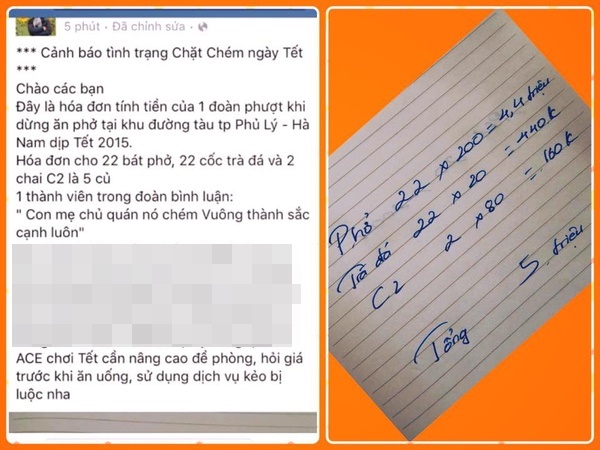 5 phút · Đã chỉnh sửa ·
*** Cảnh báo tình trạng Chặt Chém ngày Tết
***
Chào các bạn
Đây là hóa đơn tính tiền của 1 đoàn phượt khi
dừng ăn phở tại khu đường tàu tp Phủ Lý - Hà
Nam dịp Tết 2015.
Hóa đơn cho 22 bát phở, 22 cốc trà đá và 2
chai C2 là 5 củ
1 thành viên trong đoàn bình luận:
" Con mẹ chủ quán nó chém Vuông thành sắc
cạnh luôn"
ACE chơi Tết cần nâng cao đề phòng, hỏi giá
trước khi ăn uống, sử dụng dịch vụ kẻo bị
luộc nha
Phở 22 x 200 = 4,4 triệu
Trà đá 22 x 20 = 440k
C2 2 x 80 = 160k
Tổng 5 triệu